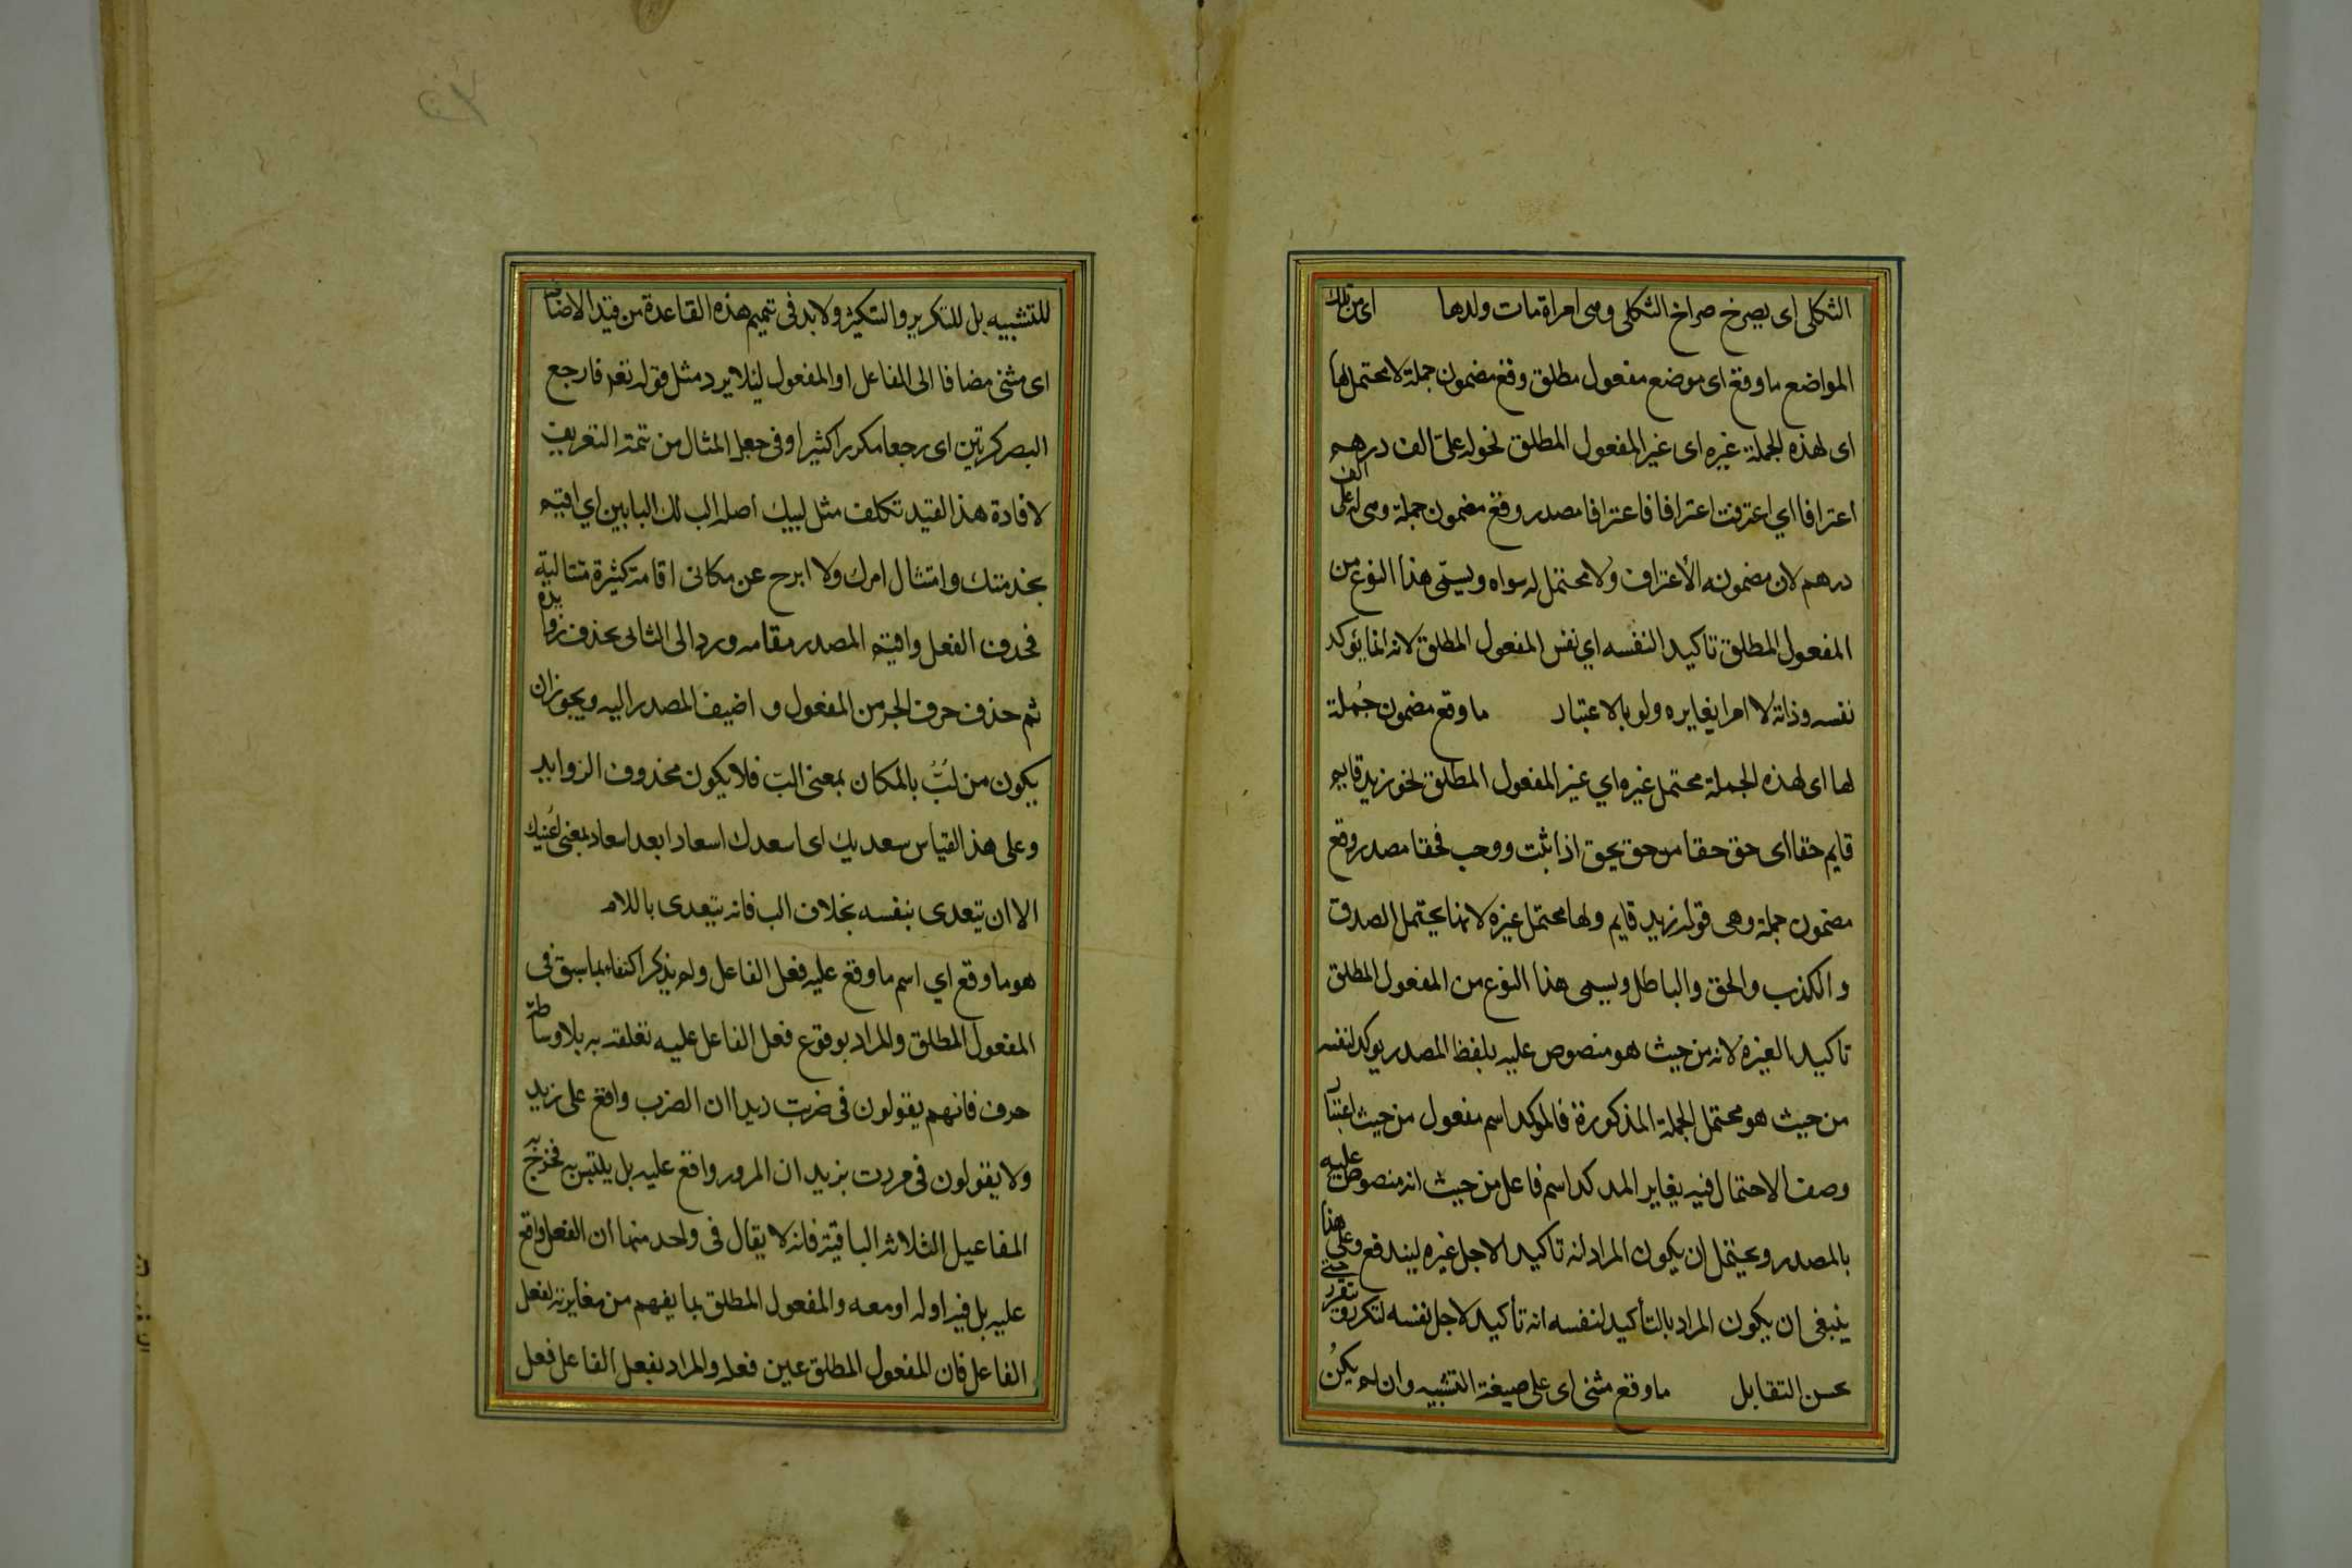 الثكلى اى يصرخ صراخ الثكلى وهى امراة مات ولدها اى من تلك
المواضع ما وقع اى موضع مفعول مطلق وقع مضمون جملة لا محتمل لها
اى لهذه الجملة غيره اى غير المفعول المطلق نحو له على الف درهم
اعترافا اي اعترفت اعترافا فاعترافا مصدر وقع مضمون جملة وهى له على الف
درهم لان مضمونه الأعتراف ولا محتمل له سواه ويسمّى هذا النوع من
المفعول المطلق تاكيدا لنفسه اي نفس المفعول المطلق لانه انما يؤكد
نفسه وذاته لا امرا يغايره ولو بالاعتبار ما وقع مضمون جُملة
لها اى لهذه الجملة محتمل غيره اي غير المفعول المطلق نحو زيد قايم
قايم حقا اى حق حقا من حق يحق اذا ثبت ووجب فحقا مصدر وقع
مضمون جملة وهى قوله زيد قايم ولها محتمل غيره لانها يحتمل الصدق
و الكذب والحق والباطل ويسمى هذا النوع من المفعول المطلق
تاكيدا لغيره لانه من حيث هو منصوص عليه بلفظ المصدر يوكد لنفسه
من حيث هو محتمل الجملة المذكورة فالموكد اسم مفعول من حيث اعتبار
وصف الاحتمال فيه يغاير الموكد اسم فاعل من حيث انه منصوص عليه
بالمصدر ويحتمل ان يكون المراد انه تاكيد لاجل غيره ليندفع وعلى هذا
ينبغى ان يكون المراد بالتأكيد لنفسه انه تأكيد لاجل نفسه لتكرر حتى تقرر
بحسن التقابل ما وقع مثنى اى على صيغة التثنيه وان لم يكنُ
للتشبيه بل للتكرير والتكثير ولا بد فى تتميم هذه القاعدة من قيد الاضافة
اى مثنى مضافا الى الفاعل او المفعول ليلا يرد مثل قوله تعه فارجع
البصر كرتين اى رجعا مكررا كثيرا وفى جعل المثال من تتمة التعريف
لافادة هذا القيد تكلف مثل لبيك اصله الب لك البابين اي اقيم
بخدمتك وامتثال امرك ولا ابرح عن مكانى اقامة كثيرة متتالية
فحدف الفعل واقيم المصدر مقامه ورد الى الثلاثى بحذف زوايده
ثم حذف حرف الجر من المفعول و اضيف المصدر اليه ويجوز ان
يكون من لبّ بالمكان بمعنى الب فلا يكون محذوف الزوايد
وعلى هذا القياس سعديك اى اسعدك اسعادا بعد اسعاد بمعنى اعينك
الا ان يتعدى بنفسه بخلاف الب فانه يتعدى باللام
هو ما وقع اي اسم ما وقع عليه فعل الفاعل ولم يذكر اكتفاء بما سبق فى
المفعول المطلق والمراد بوقوع فعل الفاعل عليه تعلقه به بلا وساطة
حرف فانهم يقولون فى ضربت زيدا ان الضرب واقع على زيد
ولا يقولون فى مررت بزيد ان المرور واقع عليه بل يلتبس به فخرج به
المفاعيل الثلاثة الباقية فانه لا يقال فى واحد منها ان الفعل واقع
عليه بل فيه او له او معه والمفعول المطلق بما يفهم من مغايرته لفعل
الفاعل فان المفعول المطلق عين فعله والمراد بفعل الفاعل فعل